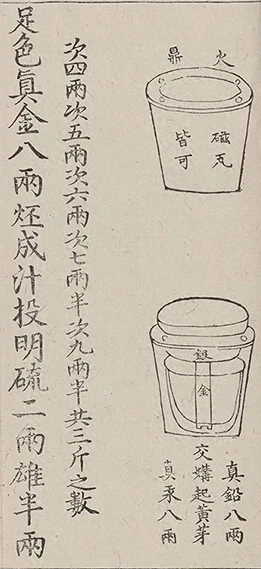 火鼎
磁瓦
皆可
銀
金
真鉛八兩
交媾起黃芽
真汞八兩
次四兩次五兩次六兩次七兩半次九兩半共三斤之數
足色眞金八兩烴成汁投明硫二兩雄半兩